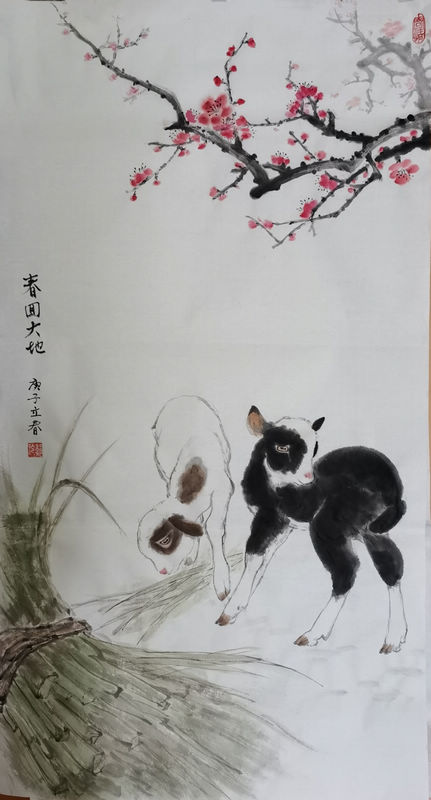 春回大地
庚子立春